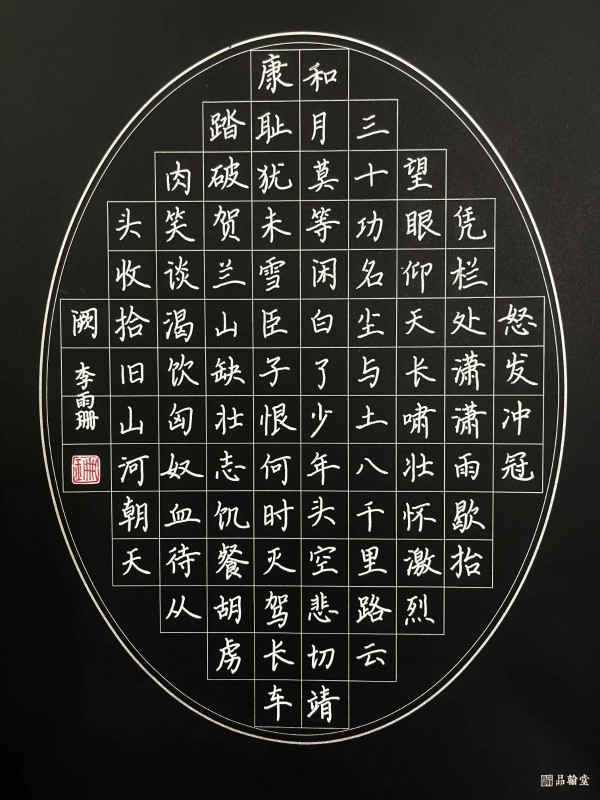 怒发冲冠
凭栏处潇潇雨歇抬
望眼仰天长啸壮怀激烈
三十功名尘与土八千里路云
和月莫等闲白了少年头空悲切靖
康耻犹未雪臣子恨何时灭驾长车
踏破贺兰山缺壮志饥餐胡虏
肉笑谈渴饮匈奴血待从
头收拾旧山河朝天
阙
李雨珊
品翰堂